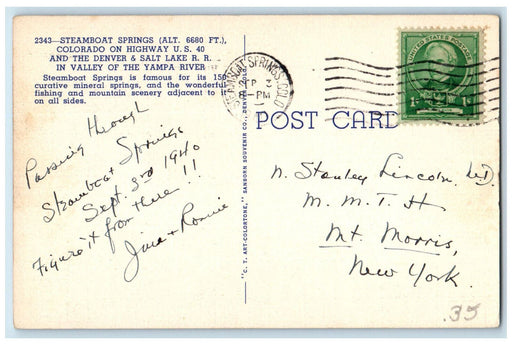 2343—STEAMBOAT SPRINGS (ALT. 6680 FT.),
COLORADO ON HIGHWAY U.S. 40
AND THE DENVER & SALT LAKE R. R.
IN VALLEY OF THE YAMPA RIVER
Steamboat Springs is famous for its 150
curative mineral springs, and the wonderful
fishing and mountain scenery adjacent to it
on all sides.
STEAMBOAT SPRINGS COLO
SEP 3
8-PM
UNITED STATES POSTAGE
1c 1c
POST CARD
Passing through
Steamboat Springs
Sept. 3rd 1940
Figure it from there!!
+ Ronnie
C. T. ART-COLORTONE, SANBORN SOUVENIR CO., DENVER, COLO.
N. Stanley Lincoln, M.D.
M. M. T. H
Mt. Morris,
New York.
.35